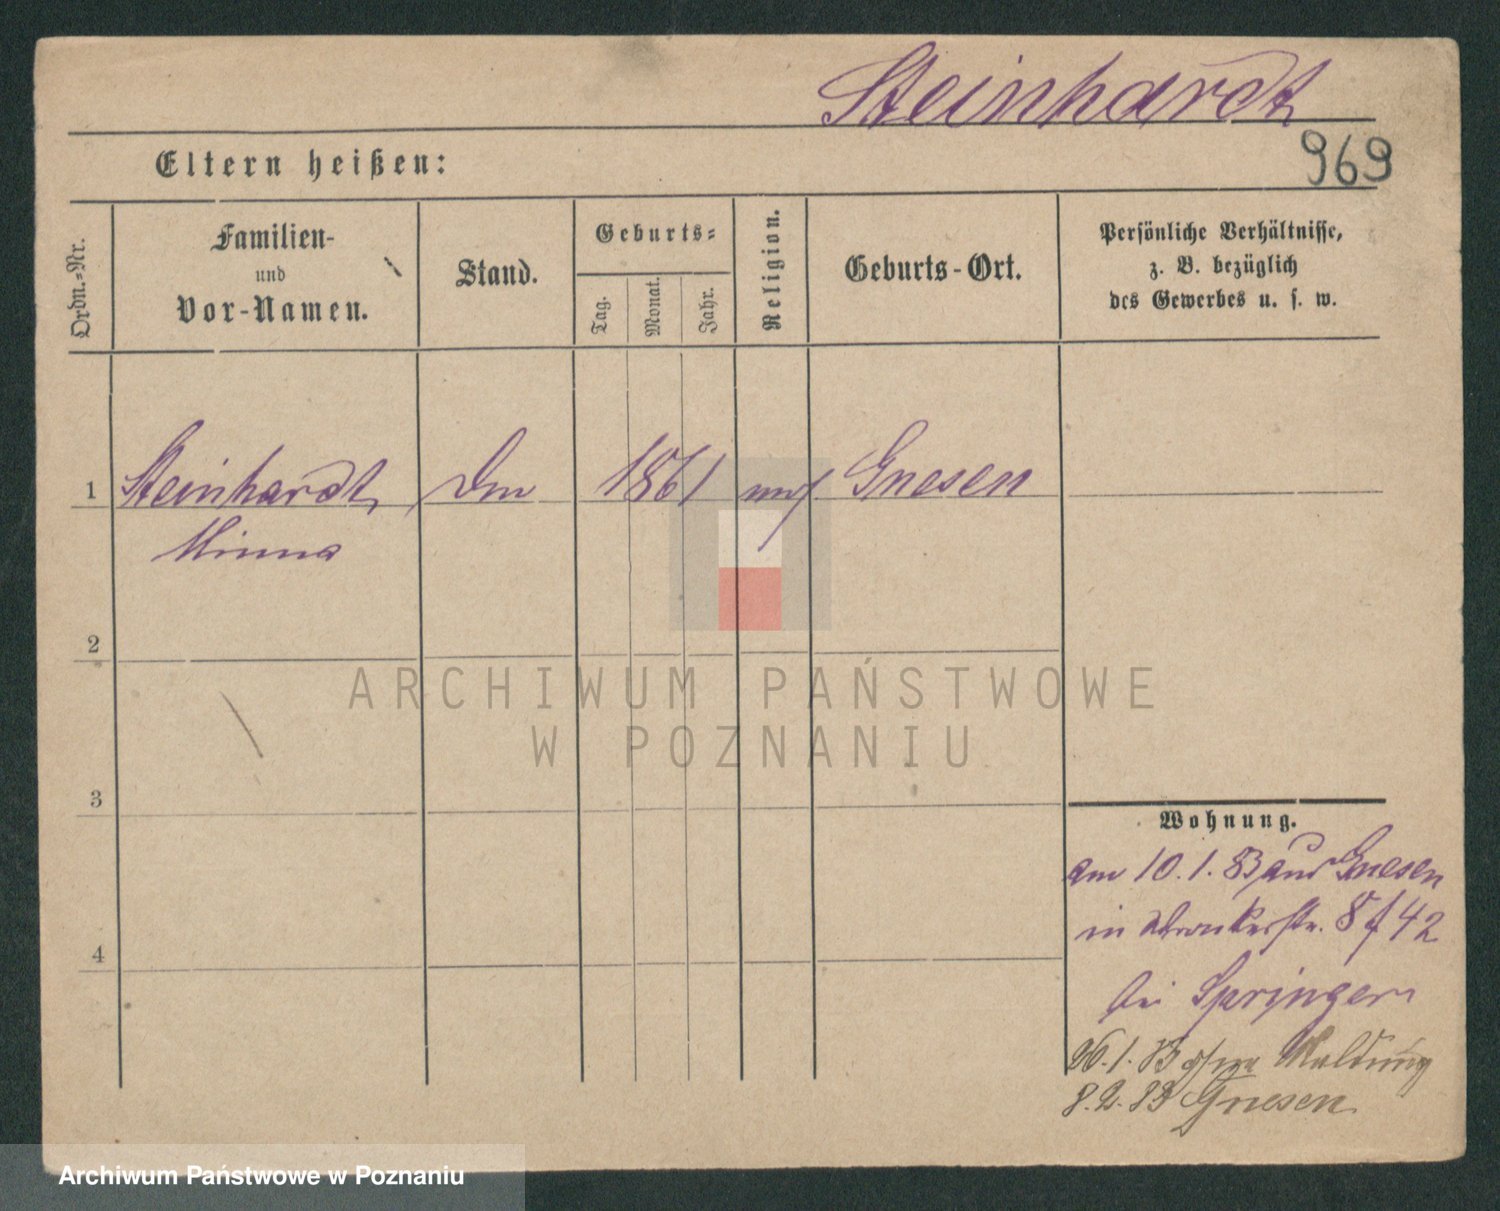 Steinhardt
969
Eltern heißen:
Ordn.-Nr.
Familien-
und
Vor-Namen.
Stand.
Geburts-
Tag.
Monat.
Jahr.
Religion.
Geburts-Ort.
Persönliche Verhältnisse,
z. B. bezüglich
des Gewerbes u. s. w.
1 Steinhardt, 1861 Gnesen
Minna
2
3
4
Wohnung.
am 10.1.83 aus Gnesen
in 8/42
bei Springer
26.1.83 ohne Meldung
8.2.83 Gnesen
ARCHIWUM PAŃSTWOWE
W POZNANIU
Archiwum Państwowe w Poznaniu